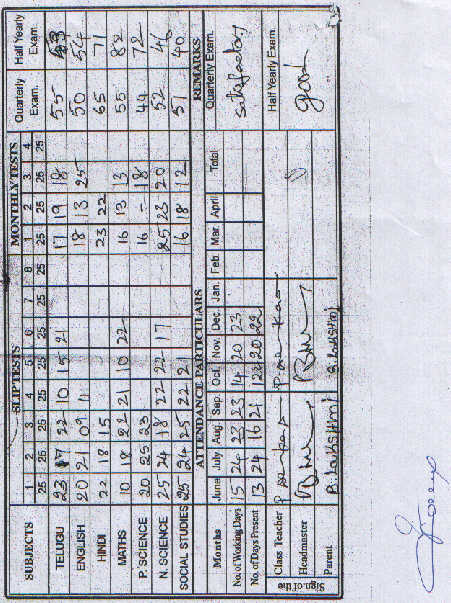 SUBJECTS SLIP TESTS MONTHLY TESTS Quarterly Exam. Half Yearly Exam.
1 2 3 4 5 6 7 8 1 2 3 4
25 25 25 25 25 25 25 25 25 25 25 25
TELUGU 23 17 22 10 15 21 17 19 18 55
ENGLISH 20 21 09 11 18 13 25 50 54
HINDI 22 18 15 23 22 65 71
MATHS 10 18 22 21 10 22 16 13 13 55 82
P. SCIENCE 20 25 23 16 - 18 49 72
N. SCIENCE 25 24 18 22 22 17 25 23 20 52 46
SOCIAL STUDIES 25 24 25 22 21 16 18 12 51 40
ATTENDANCE PARTICULARS REMARKS
Months June July Aug. Sep. Oct. Nov. Dec. Jan. Feb. Mar. April Total Quarterly Exam.
No. of Working Days 15 24 23 23 14 20 23 satisfactory
No. of Days Present 13 24 16 21 12 20 22
Sign. of the Class Teacher Half Yearly Exam.
Headmaster good
Parent B. Lakshmi B. Lakshmi